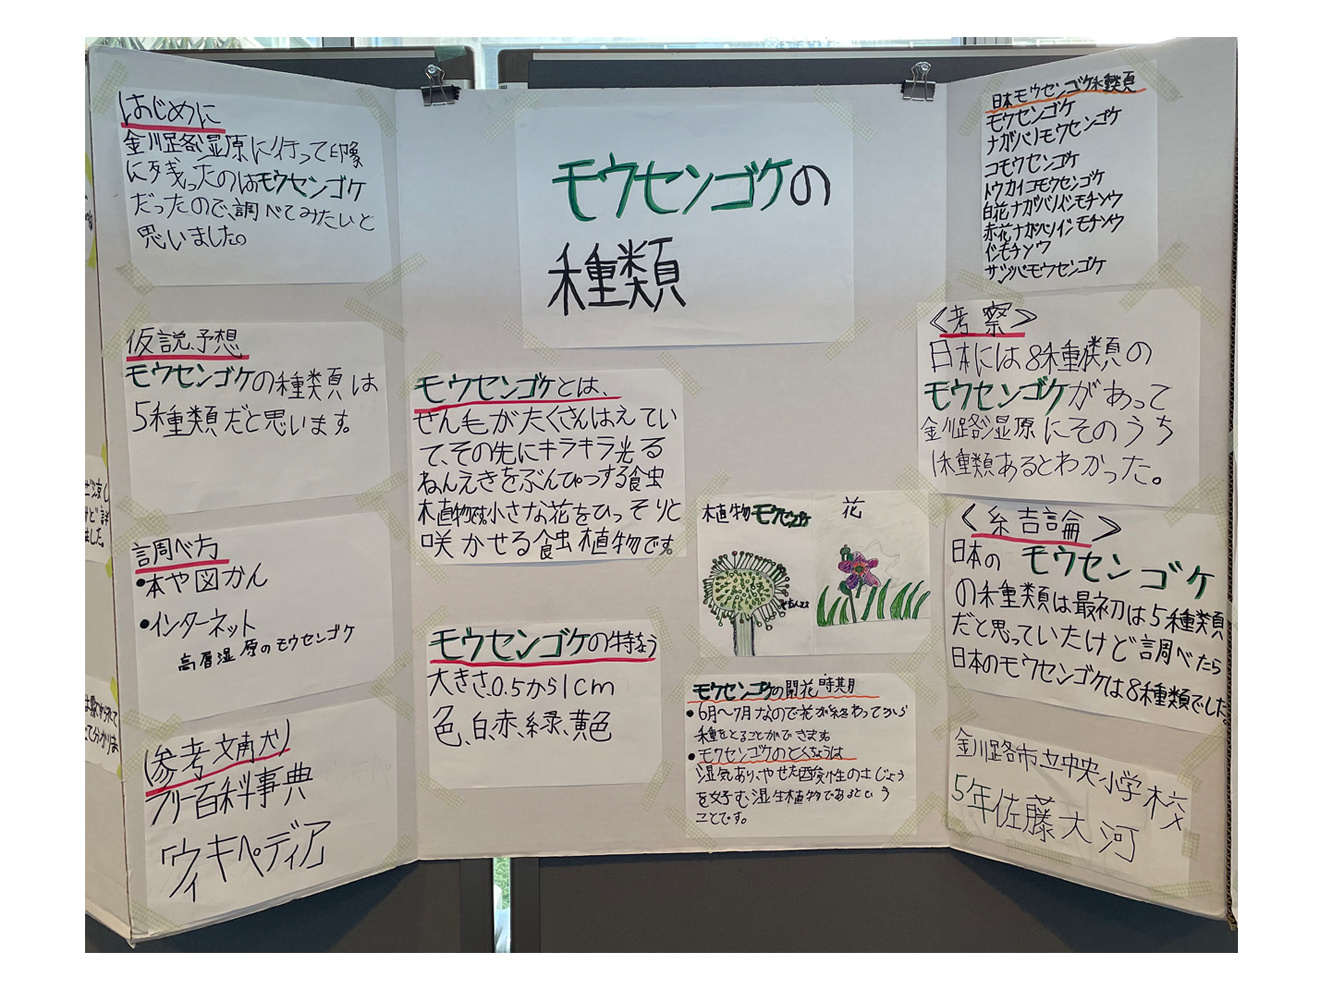 はじめに
釧路湿原に行って印象
に残ったのはモウセンゴケ
だったので、調べてみたいと
思いました。
仮説、予想
モウセンゴケの種類は
5種類だと思います。
調べ方
•本や図かん
•インターネット
高層湿原のモウセンゴケ
(参考文献)
フリー百科事典
「ウィキペディア」
モウセンゴケの
種類
モウセンゴケとは、
せん毛がたくさんはえてい
て、その先にキラキラ光る
ねんえきをぶんぴつする食虫
植物です。小さな花をひっそりと
咲かせる食虫植物です。
モウセンゴケの特ちょう
大きさ、0.5から1cm
色、白、赤、緑、黄色
植物モウセンゴケ 花
モウセンゴケの開花時期
•6月〜7月なので花が終わってから
種をとることができます
•モウセンゴケのとくちょうは
湿気あり、やせた酸性の土じょう
を好む湿生植物であるという
ことです。
日本モウセンゴケ種類
モウセンゴケ
ナガバノモウセンゴケ
コモウセンゴケ
トウカイコモウセンゴケ
白花ナガバノイシモチソウ
赤花ナガバノイシモチソウ
イシモチソウ
サジバモウセンゴケ
<考察>
日本には8種類の
モウセンゴケがあって
釧路湿原にそのうち
1種類あるとわかった。
<結論>
日本のモウセンゴケ
の種類は最初は5種類
だと思っていたけど調べたら
日本のモウセンゴケは8種類でした。
釧路市立中央小学校
5年佐藤大河